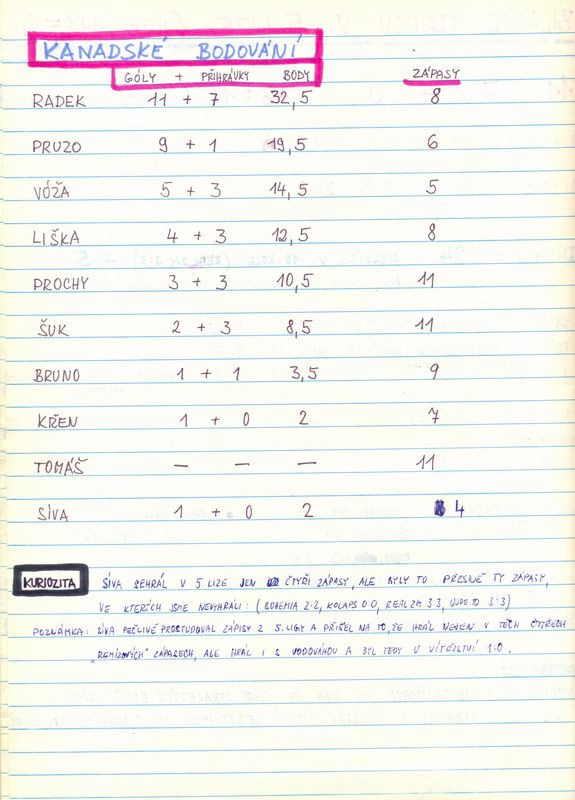 KANADSKÉ BODOVÁNÍ
GÓLY + PŘIHRÁVKY BODY ZÁPASY
RADEK 11 + 7 32,5 8
PRUZO 9 + 1 19,5 6
VÓŽA 5 + 3 14,5 5
LIŠKA 4 + 3 12,5 8
PROCHY 3 + 3 10,5 11
ŠUK 2 + 3 8,5 11
BRUNO 1 + 1 3,5 9
KŘEN 1 + 0 2 7
TOMÁŠ — — — 11
SÍVA 1 + 0 2 4
KURIOZITA SÍVA SEHRÁL V 5. LIZE JEN ČTYŘI ZÁPASY, ALE BYLY TO PŘESNĚ TY ZÁPASY,
VE KTERÝCH JSME NEVYHRÁLI: (BOHEMIA 2:2, KOLAPS 0:0, REAL ZM 3:3, 3:3)
POZNÁMKA: SÍVA PEČLIVĚ PROSTUDOVAL ZÁPISY Z 5. LIGY A PŘIŠEL NA TO, ŽE HRÁL NEJEN V TĚCH ČTYŘECH
„REMÍZOVÝCH" ZÁPASECH, ALE HRÁL I S VODOVÁHOU A BYL TEDY U VÍTĚZSTVÍ 1:0.